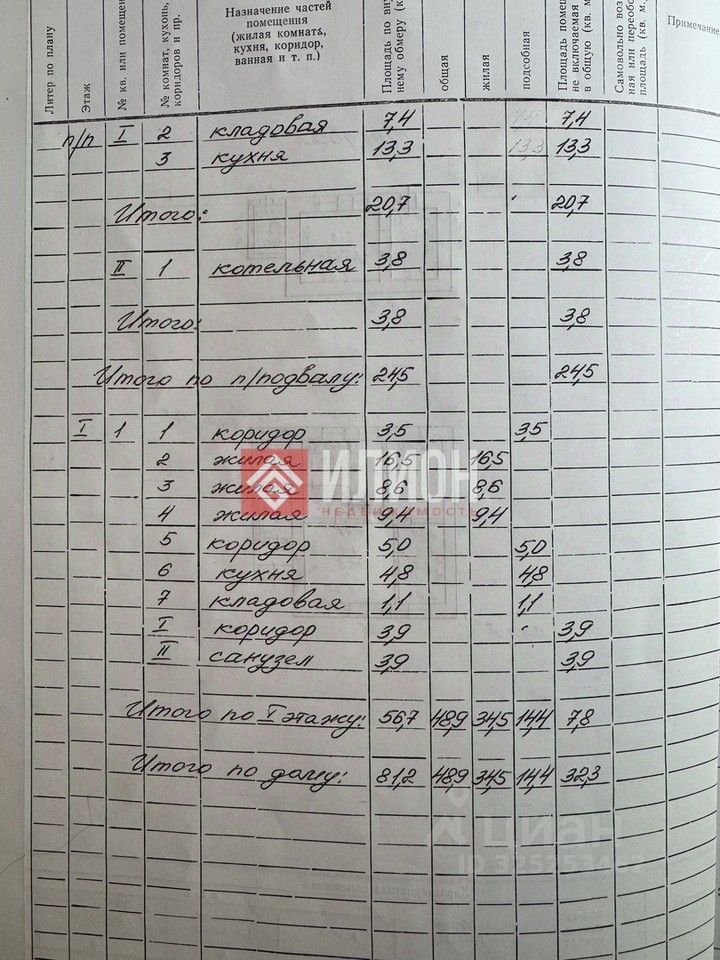 Литер по плану
Этаж
№ кв. или помещен
№ комнат, кухонь, коридоров и пр.
Назначение частей помещения (жилая комната, кухня, коридор, ванная и т. п.)
Площадь по вну нему обмеру (к
общая
жилая
подсобная
Площадь помещ не включаемая в общую (кв. м
Самовольно воз ная или переобо площадь (кв. м.
Примечание
п/п I 2 кладовая 7,4 7,4 7,4
3 кухня 13,3 13,3 13,3
Итого: 20,7 20,7
II 1 котельная 3,8 3,8
Итого: 3,8 3,8
Итого по п/подвалу: 24,5 24,5
I 1 1 коридор 3,5 3,5
2 жилая 16,5 16,5
3 жилая 8,6 8,6
4 жилая 9,4 9,4
5 коридор 5,0 5,0
6 кухня 4,8 4,8
7 кладовая 1,1 1,1
I коридор 3,9 3,9
II санузел 3,9 3,9
Итого по I этажу: 56,7 48,9 34,5 14,4 7,8
Итого по дому: 81,2 48,9 34,5 14,4 32,3
ИЛИОН
НЕДВИЖИМОСТЬ
циан